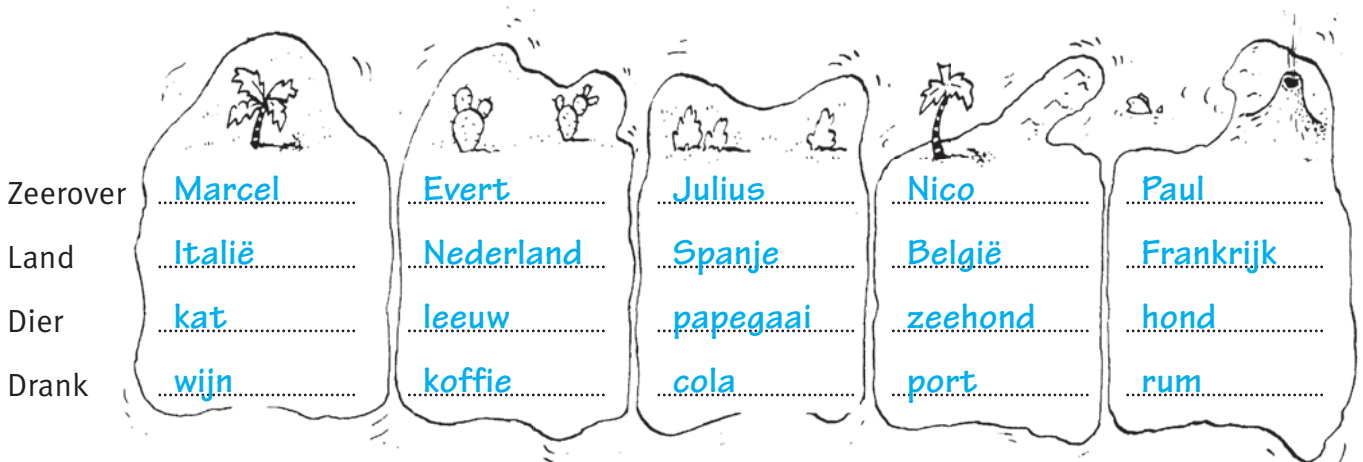 Zeerover Marcel Evert Julius Nico Paul
Land Italië Nederland Spanje België Frankrijk
Dier kat leeuw papegaai zeehond hond
Drank wijn koffie cola port rum